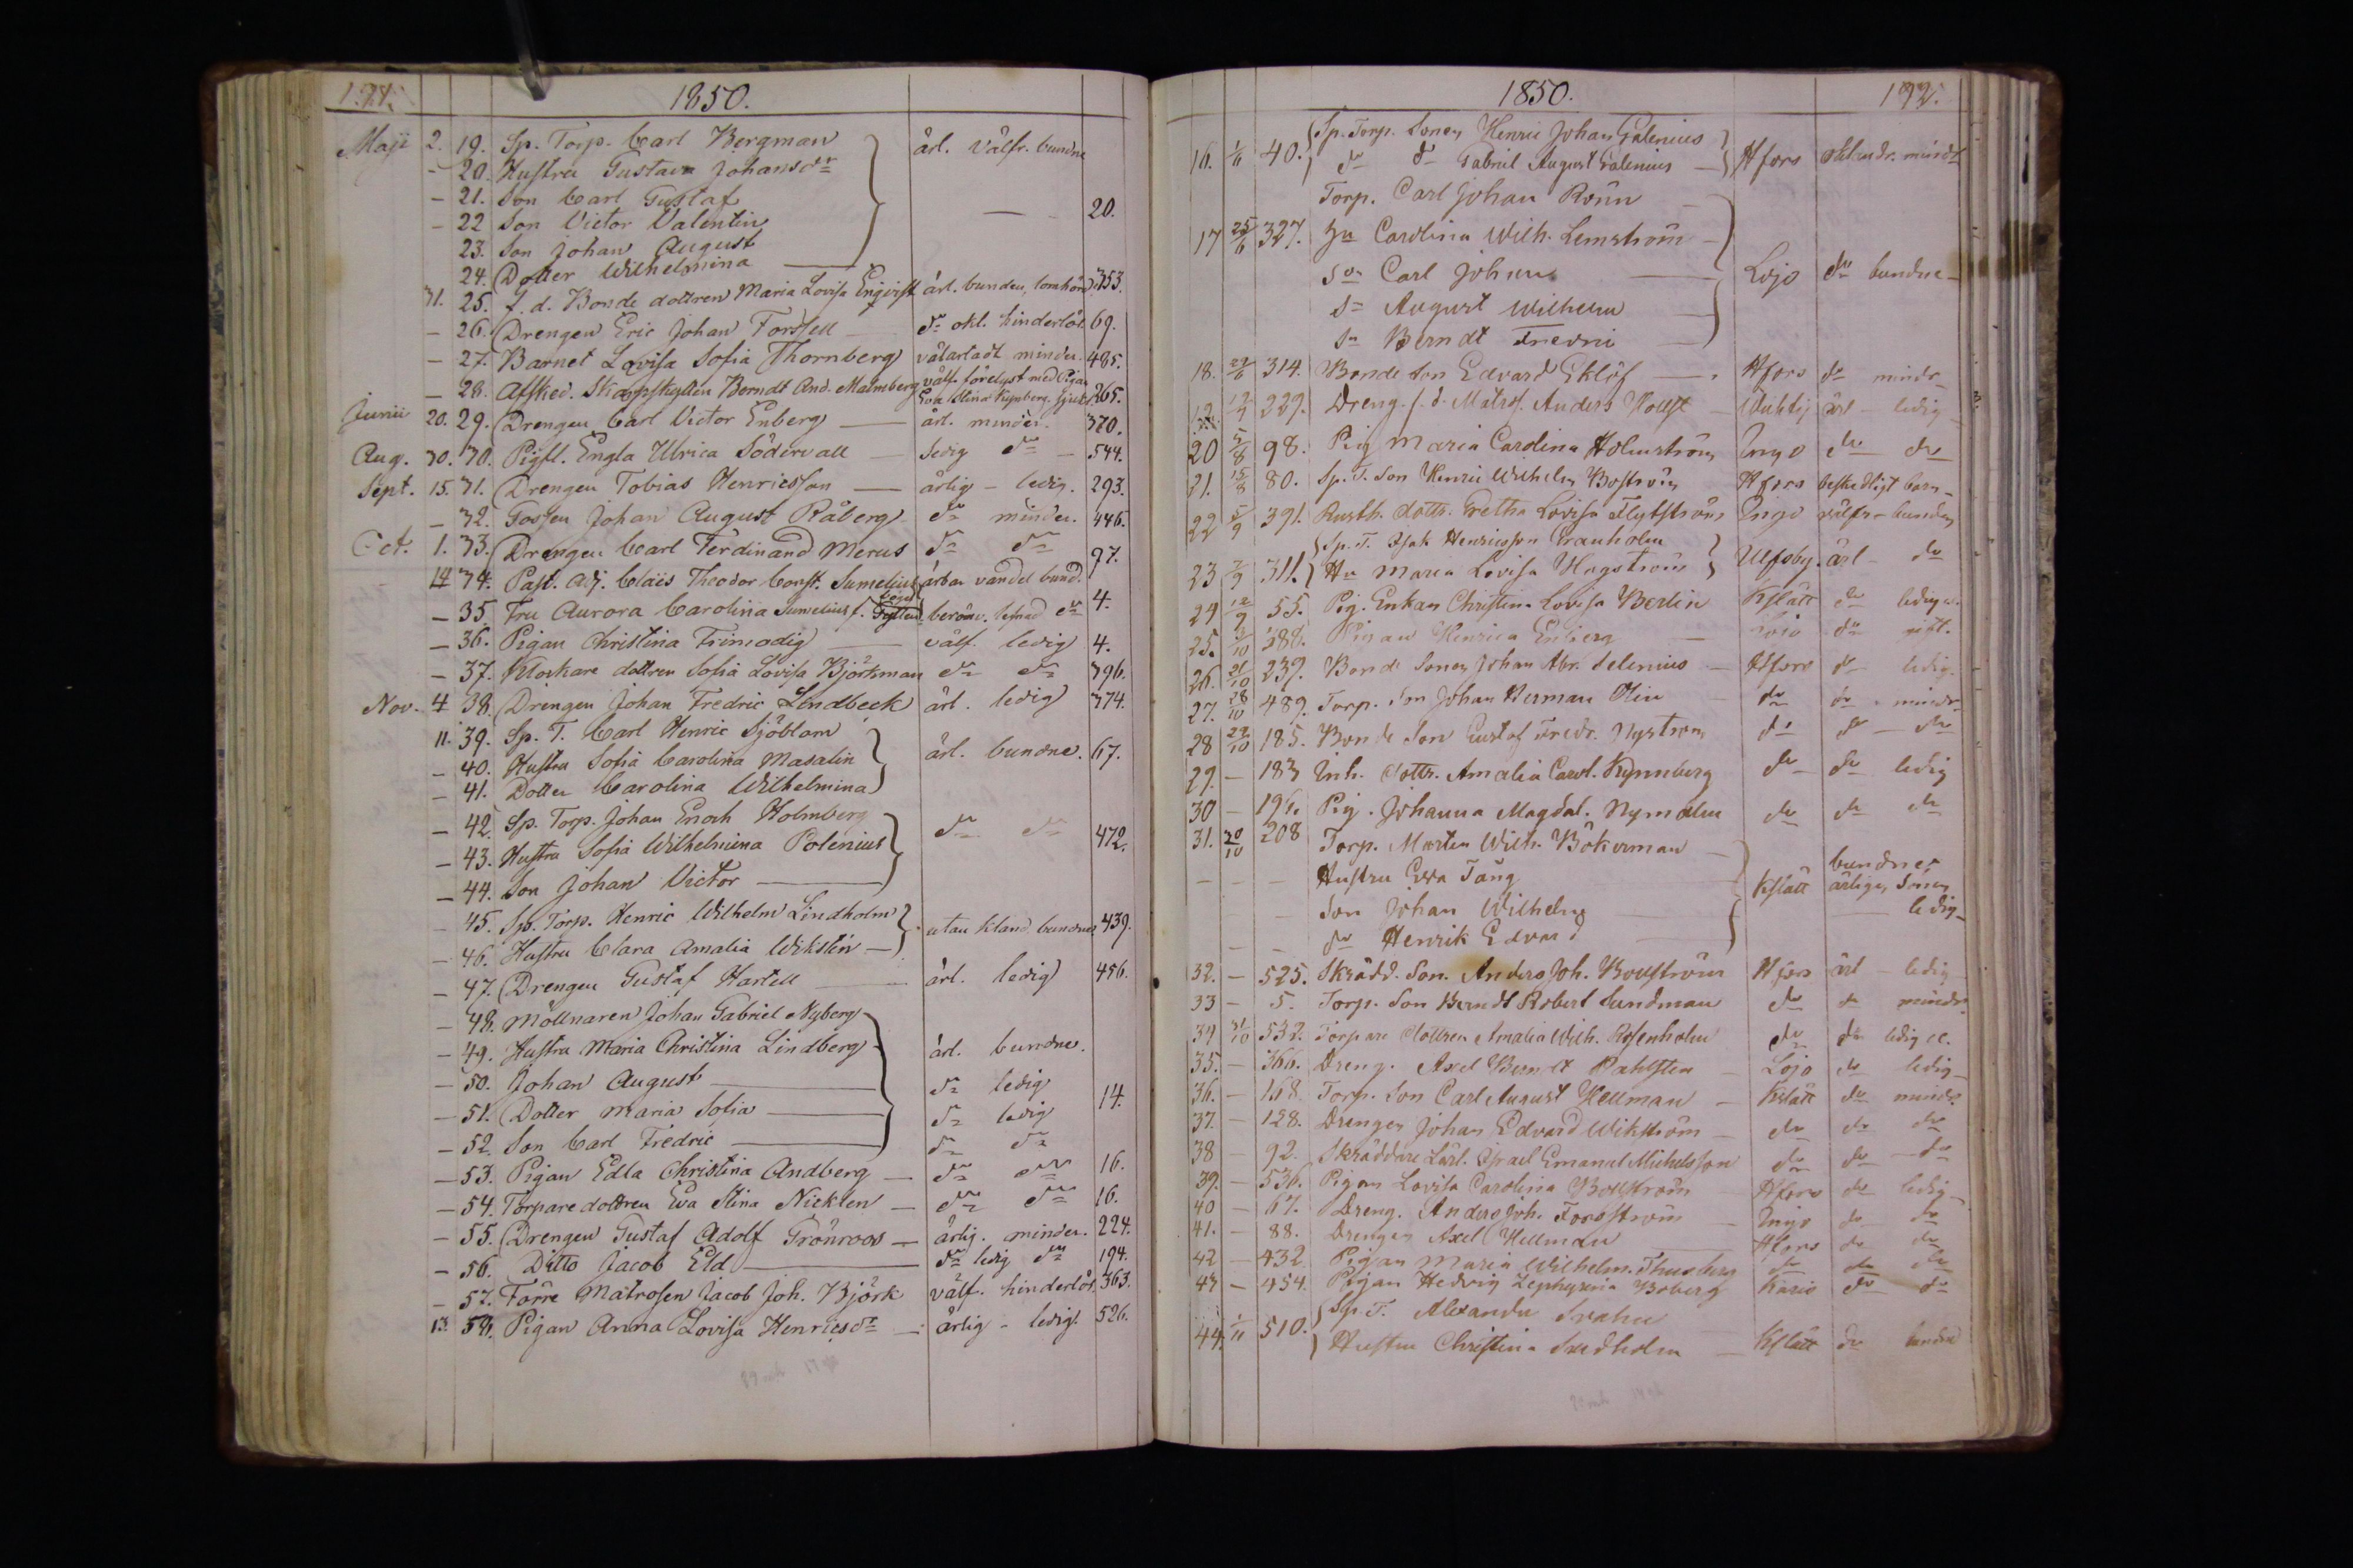 1850.
Maji 2. 19. Sp. Torp. Carl Bergman årl. välfr. bundne
- 20. Hustru Gustava Johansdr
- 21. Son Carl Gustaf 20.
- 22 Son Victor Valentin
23. Son Johan August
24. Dotter Wilhelmina
31. 25. f. d. Bonde dottren Maria Lovisa Enqvist årl. bunden, 353.
- 26. Drengen Eric Johan Forssell dr okl. hinderlös 69.
- 27. Barnet Lovisa Sofia Thornberg välartadt minder. 485.
- 28. Afsked. Skarpskytten Berndt And. Malmberg välf. förelyst med Pigan Eva Stina 265.
Junii 20. 29. Drengen Carl Victor Enberg årl. minder. 370.
Aug. 30. 30. Pigfl. Engla Ulrica Södervall ledig dr 544.
Sept. 15. 31. Drengen Tobias Henricsson årlig - ledig. 293.
- 32. Gossen Johan August Råberg dr minder. 446.
Oct. 1. 33. Drengen Carl Ferdinand Merus dr dr 97.
14 34. Past. Adj. Claës Theodor Const. Sumelius ärbar vandel bund.
- 35. Fru Aurora Carolina Sumelius f. beröm. lefnad dr 4.
- 36. Pigan Christina Frimodig välf. ledig 4.
- 37. Klockare dottren Sofia Lovisa Björkman dr dr 396.
Nov. 4 38. Drengen Johan Fredric Lindbeck årl. ledig 374.
11. 39. Sp. T. Carl Henric Sjöblom
- 40. Hustru Sofia Carolina Masalin årl. bundne. 67.
- 41. Dotter Carolina Wilhelmina
- 42. Sp. Torp. Johan Enoch Holmberg dr dr
- 43. Hustru Sofia Wilhelmina Polenius 472.
- 44. Son Johan Victor
- 45. Sp. Torp. Henric Wilhelm Lindholm utan kland. bundne 439.
- 46. Hustru Clara Amalia Wikstén
- 47. Drengen Gustaf Hartell årl. ledig 456.
- 48. Möllnaren Johan Gabriel Nyberg
- 49. Hustru Maria Christina Lindberg årl. bundne.
- 50. Johan August dr ledig
- 51. Dotter Maria Sofia dr ledig 14.
- 52. Son Carl Fredric dr dr
- 53. Pigan Edla Christina Andberg dr dr 16.
- 54. Torpare dottren Eva Stina Nicklen dr dr 16.
- 55. Drengen Gustaf Adolf Grönroos årlig. minder. 224.
- 56. Ditto Jacob Eld dr ledig dr 194.
- 57. Förre Matrosen Jacob Joh. Björk välf. hinderlös. 363.
13 58. Pigan Anna Lovisa Henricsdr årlig - ledig. 526.
1850. 192.
16. 1/6 40. Sp. Torp. Sonen Henric Johan Galenius
dr dr Gabriel August Galenius Hfors mindr
Torp. Carl Johan Rönn
17 25/6 327. Hu Carolina Wilh. Lemström
Sn Carl Johan Lojo dr bundne
Sn August Wilhelm
Sn Berndt Fredric
18. 29/6 314. Bonde Son Edvard Eklöf Hfors dr mindr
229. Dreng. f. d. Matros. Anders Holst årl ledig
20 5/8 98. Pig Maria Carolina Holmström Ingo dr dr
21. 15/8 80. Sp. T. Son Henric Wilhelm Boström Hfors beskedligt barn
22 5/9 391. Rusth. dottr. Gretha Lovisa Flytström Ingo välfr bunden
Sp. T. Isak Henricsson Granholm
23 7/9 311. Hu Maria Lovisa Hagström Ulfsby årl dr
24 12/9 55. Pig. Enkan Christina Lovisa Berlin Kslätt dr ledig
25. 288. Pigan Henrica Enberg Lojo dr
26. 21/10 239. Bonde Sonen Johan Abr. Selenius Hfors dr ledig.
27. 28/10 489. Torp. Son Johan Herman Olin dr dr mindr
28 29/10 185. Bonde Son Gustaf Fredr. Nyström dr dr dr
29. - 183 Inh. Dottr. Amalia Carol. Kynnberg dr dr ledig
30 - 196. Pig. Johanna Magdal. Nymalm dr dr dr
31. 30/10 208 Torp. Morten Wilh. Bökerman
- - - Hustru Eva Tång bundne
Son Johan Wilhelm Kslätt ärlige, Sönen
- - dr Henrik Edvard ledig
32. - 525. Skrädd. Son. Anders Joh. Boström Hfors årl ledig
33 - 5. Torp. Son Berndt Robert Sundman dr dr mindr
34 31/10 532. Torpare dottren Amalia Wilh. Rosenholm dr dr ledig
35. - 366. Dreng. Axel Berndt Pahlsten Lojo dr ledig
36. - 168. Torp. Son Carl August Hellman Kslätt dr mindr
37. - 128. Drengen Johan Edvard Wikström dr dr dr
38 - 92. Skräddare Lärl. Israel Emanuel Michelsson dr dr dr
39. - 536. Pigan Lovisa Carolina Boström Hfors dr ledig
40 - 67. Dreng. Anders Joh. Forsström Ingo dr dr
41. - 88. Drengen Axel Hellman Hfors dr dr
42 - 432. Pigan Maria Wilhelm. Thusberg dr dr dr
43 - 454. Pigan Hedvig Zephyrina Boberg Karis dr dr
Sp. T. Alexander Svahn
44. 1/11 510. Hustru Christina Sundholm Kslätt dr bundne